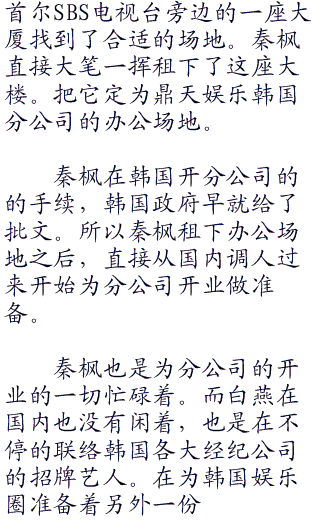 首尔SBS电视台旁边的一座大
厦找到了合适的场地。秦枫
直接大笔一挥租下了这座大
楼。把它定为鼎天娱乐韩国
分公司的办公场地。
秦枫在韩国开分公司的
的手续，韩国政府早就给了
批文。所以秦枫租下办公场
地之后，直接从国内调人过
来开始为分公司开业做准
备。
秦枫也是为分公司的开
业的一切忙碌着。而白燕在
国内也没有闲着，也是在不
停的联络韩国各大经纪公司
的招牌艺人。在为韩国娱乐
圈准备着另外一份